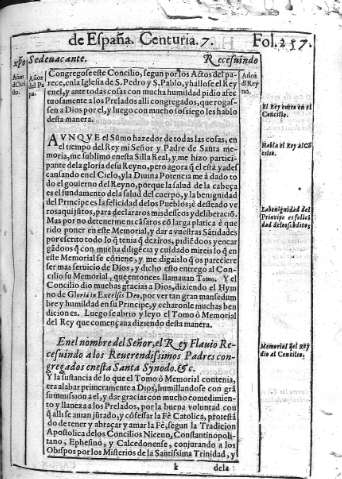 de España. Centuria. 7.
Fol. 257.
Sede vacante.
Recesuindo
Congregose este Concilio, segun por los Actos del pa-
rece, en la Iglesia de S. Pedro y S. Pablo, y hallose el Rey
en el, y ante todas cosas con mucha humildad pidio afec
tuosamente a los Prelados alli congregados, que rogas-
sen a Dios por el, y luego con mucho sosiego les hablo
desta manera.
El Rey entra en el
Concilio.
AVNQVE el Sumo hazedor de todas las cosas, en
el tiempo del Rey mi Señor y Padre de santa me-
moria, me sublimo en esta Silla Real, y me hizo partici-
pante dela gloria de su Reyno, pero agora q̃ el està ya des
cansando en el Cielo, y la Diuina Potencia me à dado to
do el gouierno del Reyno, porque la salud de la cabeça
es el fundamento dela salud del cuerpo, y la benignidad
del Principe es la felicidad de los Pueblos,
Habla el Rey al Cõ-
cilio.
La benignidad del
Principe es felici
dad de los subditos.
rido poner en este Memorial, y dar a vuestras Santidades
por escrito todo lo q̃
este Memorial se cõtiene, y me digais lo q̃ os pareciere
ser mas seruicio de Dios, y dicho esto entrego al Con-
cilio su Memorial, que entonces llamauan Tomo. Y el
Concilio dio muchas gracias a Dios, diziendo el Hym
no de Gloria in Excelsis Deo, por ver tan gran mansedum
bre y humildad en su Principe, y echaronle muchas ben
diciones. Luego se abrio y leyo el Tomo ò Memorial
del Rey que començaua diziendo desta manera.
En el nombre del Señor, el Rey Flauio Re-
cesuindo a los Reuerendissimos Padres con-
gregados en esta Santa Synodo. &c.
Memorial del Rey
dio al Concilio.
Y la sustancia de lo que el Tomo ò Memorial contenia,
era alabar primeramente a Dios, humillandose con grã
sumission a el, y dar gracias con mucho comedimien-
to y llaneza a los Prelados, por la buena voluntad con
q̃ alli se auian jũtado, y cõfessar la Fè Catolica, protestã
do de tener y abraçar y amar la Fè, segun la Tradicion
Apostolica de los Concilios Niceno, Constantinopoli-
tano, Ephesino, y Calcedonense, conjurando a los
Obispos por los Misterios de la Santissima Trinidad, y
k
dela